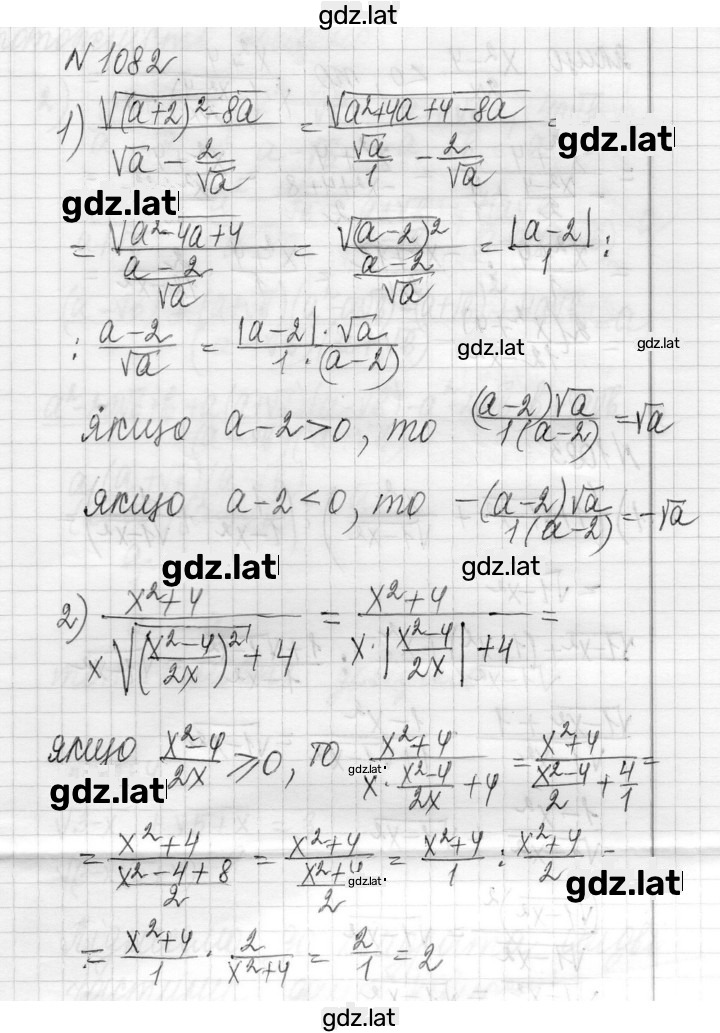 gdz.lat
N 1082
1) √((a+2)²-8a) / (√a - 2/√a) = √(a²+4a+4-8a) / (√a/1 - 2/√a) =
gdz.lat
gdz.lat
= √(a²-4a+4) / ((a-2)/√a) = √((a-2)²) / ((a-2)/√a) = |a-2|/1 :
: (a-2)/√a = |a-2|·√a / (1·(a-2))
gdz.lat
gdz.lat
якщо a-2>0, то (a-2)√a / 1(a-2) = √a
якщо a-2<0, то -(a-2)√a / 1(a-2) = -√a
gdz.lat
gdz.lat
2) (x²+4) / (x√(((x²-4)/2x)²) + 4) = (x²+4) / (x·|(x²-4)/2x| + 4) =
якщо (x²-4)/2x ⩾ 0, то (x²+4) / (x·(x²-4)/2x + 4) = (x²+4) / ((x²-4)/2 + 4/1) =
gdz.lat
gdz.lat
= (x²+4) / ((x²-4+8)/2) = (x²+4) / ((x²+4)/2) = (x²+4)/1 : (x²+4)/2 =
gdz.lat
gdz.lat
= (x²+4)/1 · 2/(x²+4) = 2/1 = 2
gdz.lat